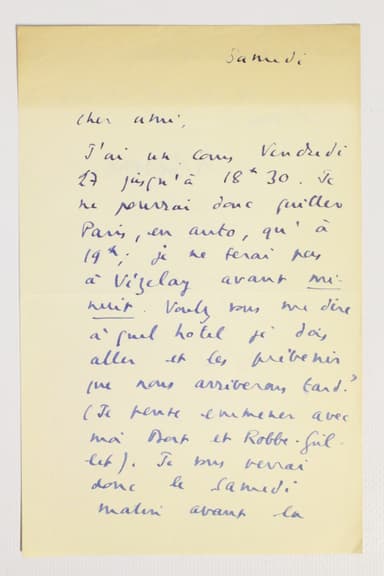 Samedi
Cher ami,
J'ai un cours Vendredi
27 jusqu'à 18h30. Je
ne pourrai donc quitter
Paris, en auto, qu'à
19h; je ne serai pas
à Vézelay avant mi-
nuit. Voulez vous me dire
à quel hotel je dois
aller et les prévenir
que nous arriverons tard?
(Je pense emmener avec
moi Dort et Robbe-Gril-
let). Je vous verrai
donc le Samedi
matin avant la